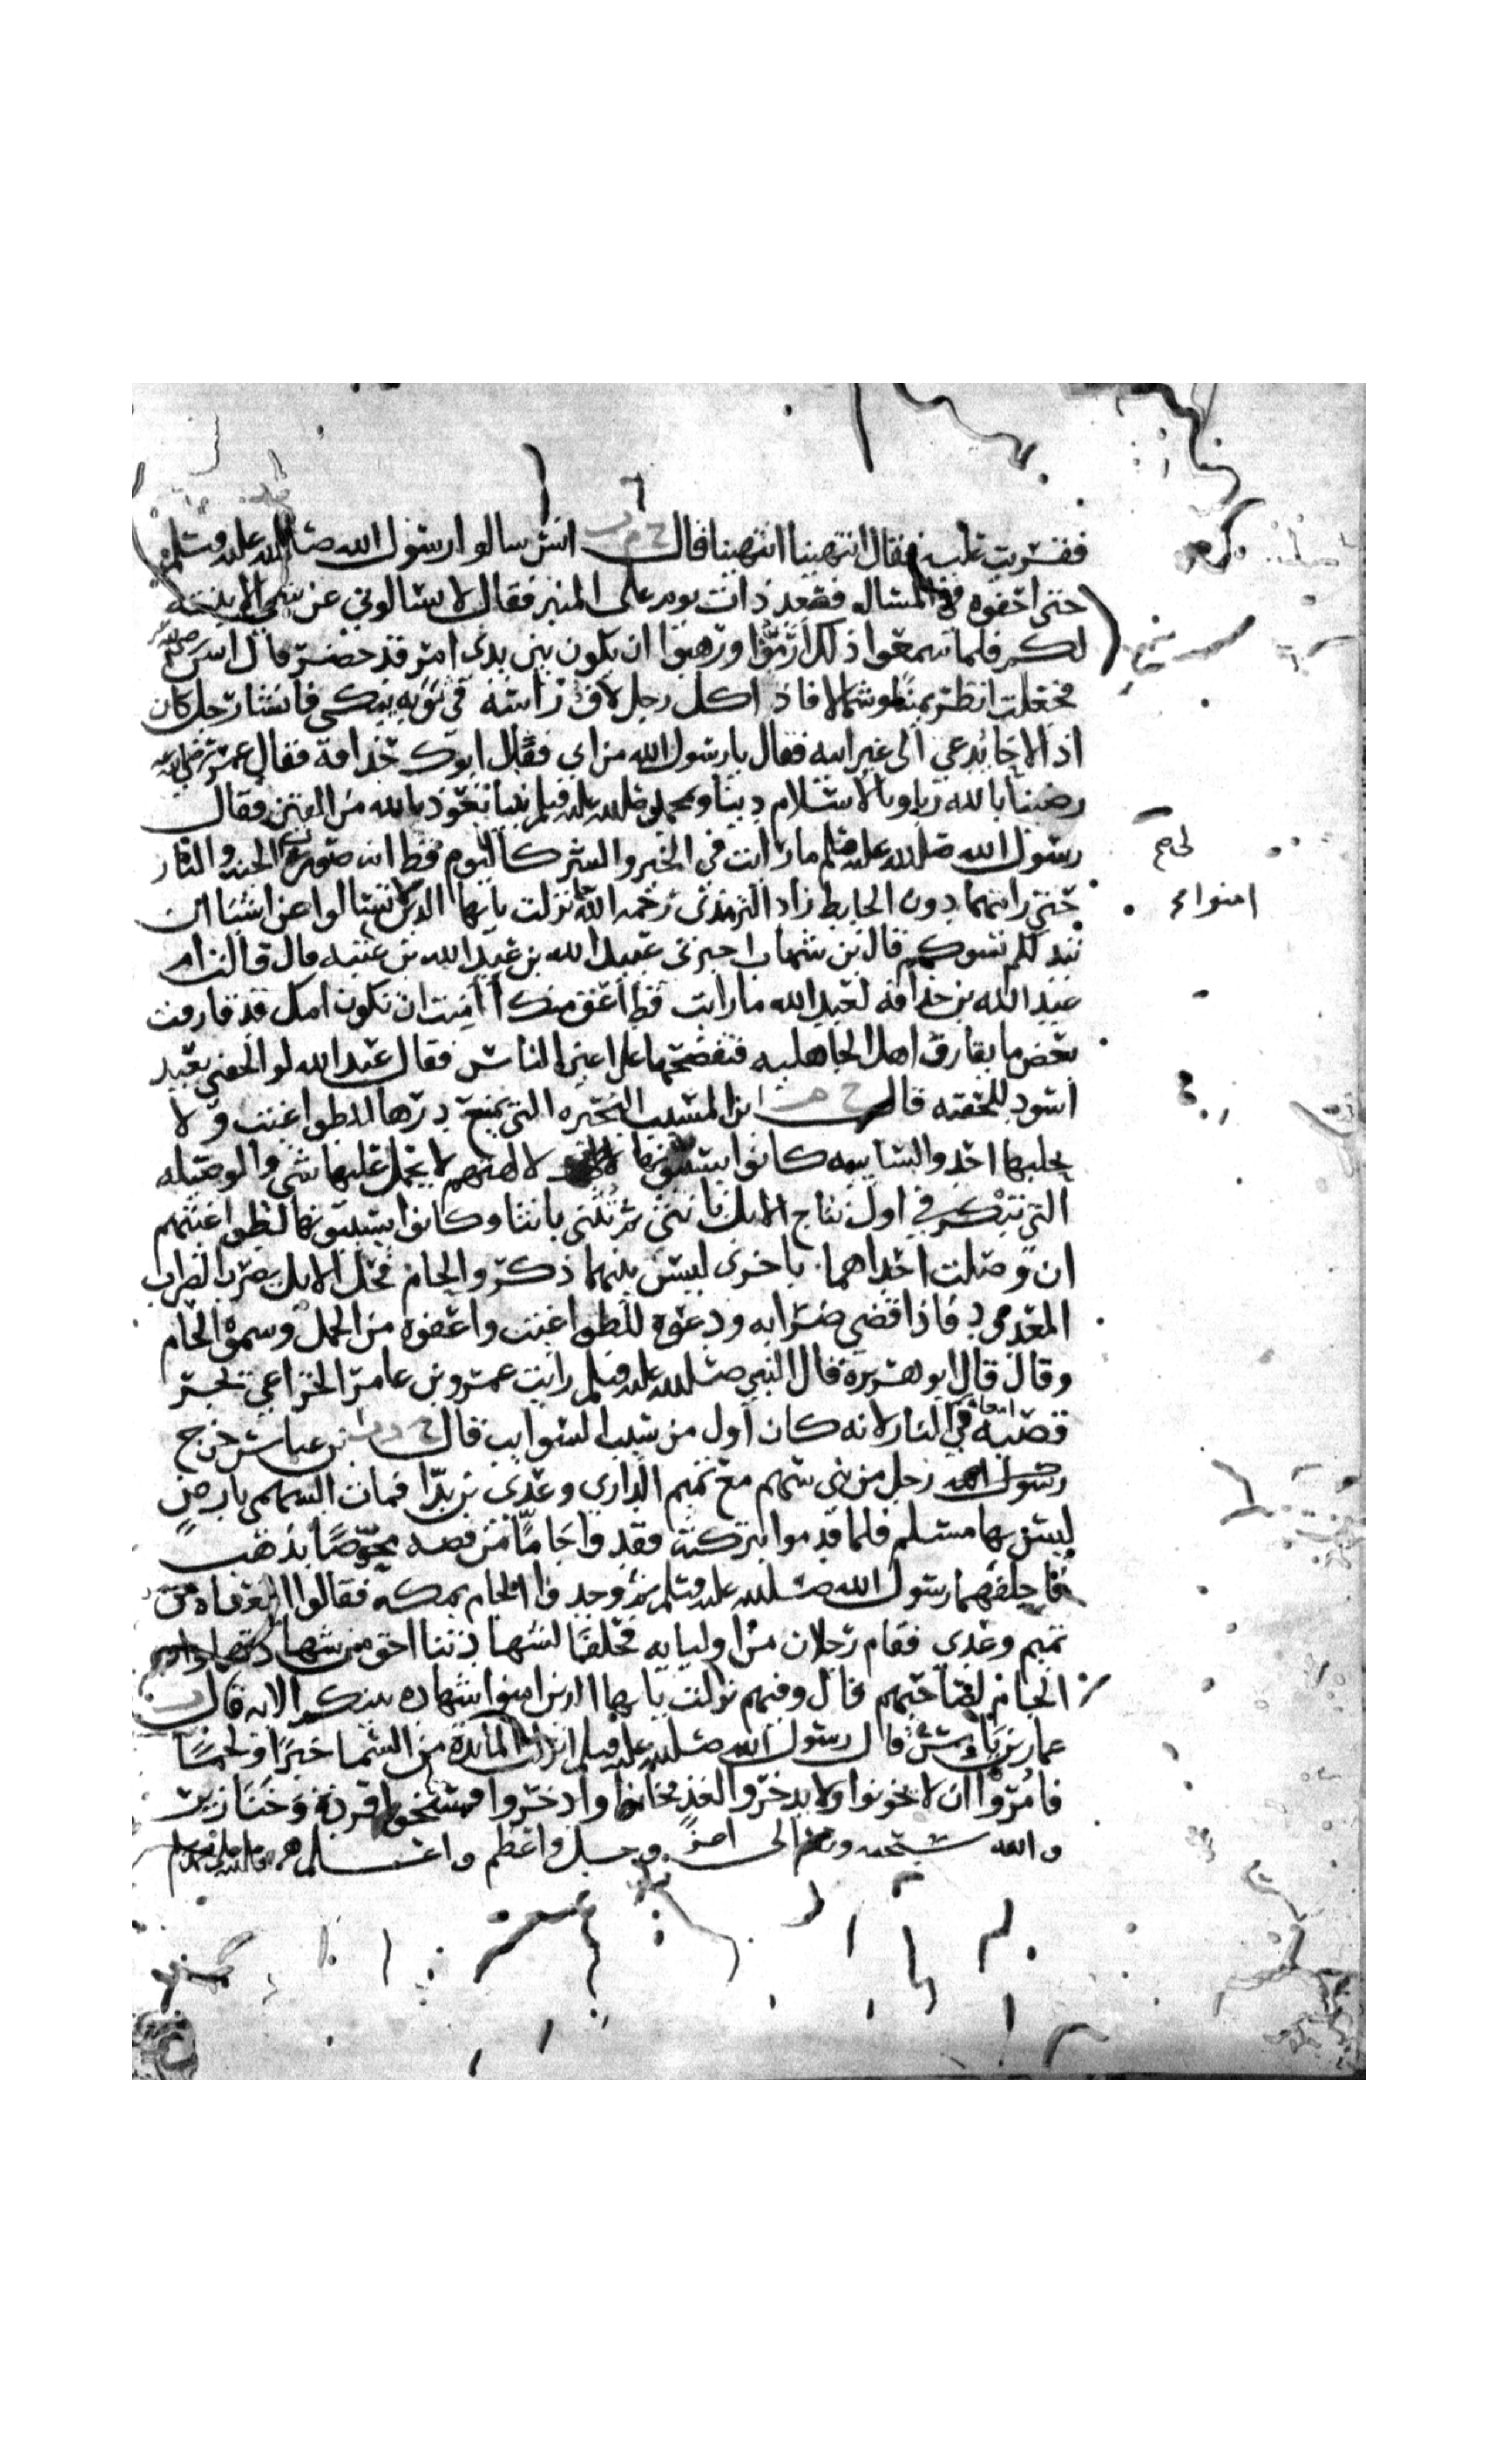 فقرئت عليه فقال انتهينا انتهينا قال خ م ت انس سالوا رسول الله صلى الله عليه وسلم
حتى احفوه في المساله فصعد ذات يوم على المنبر فقال لا تسالوني عن شي الا بينته
لكم فلما سمعوا ذلك ارموا ورهبوا ان يكون بين يدي امر قد حضر قال انس
فجعلت انظر يمينا وشمالا فاذا كل رجل لاف راسه في ثوبه يبكي فانشا رجل كان
اذا لاحا يدعي الى غير ابيه فقال يا رسول الله من ابي فقال ابوك حذافة فقال عمر
رضينا بالله ربا وبالاسلام دينا وبمحمد صلى الله عليه وسلم نبيا نعوذ بالله من الفتن فقال
رسول الله صلى الله عليه وسلم ما رايت في الخير والشر كاليوم قط انه صورت لي الجنه والنار
حتى رايتهما دون الحايط زاد الترمذي رحمه الله نزلت يايها الذين لا تسالوا عن اشيا ان
امنوا
تبد لكم تسوكم قال بن شهاب اخبرني عبيد الله بن عبد الله بن عتبه قال قالت ام
عبد الله بن حذافه لعبد الله ما رايت قط اعق منك اامنت ان تكون امك قد قارفت
بعض ما يقارف اهل الجاهليه فتفضحها على اعين الناس فقال عبد الله لو الحقني بعبد
اسود للحقته قال خ م ابن المسيب البحيره التي يمنع درها للطواغيت ولا
يحلبها احد والسايبه كانوا يسيبونها لالهتهم لا يحمل عليها شي والوصيله
التي تبكر في اول نتاج الابل بانثى ثم تثني بانثا وكانوا يسيبونها لطواغيتهم
ان وصلت احداهما باخرى ليس بينهما ذكر والحام فحل الابل يضرب الضراب
المعدود فاذا قضى ضرابه ودعوه للطواغيت واعفوه من الحمل وسموه الحام
وقال قال ابو هريرة قال النبي صلى الله عليه وسلم رايت عمرو بن عامر الخزاعي يجر
قصبه في النار لانه كان اول من سيب السوايب قال خ د ت بن عباس خرج
امعاه
رجل من بني سهم مع تميم الداري وعدي بن بدا فمات السهمي بارض
ليس بها مسلم فلما قدموا بتركته فقدوا جاما من فضه مخوصا بذهب
فاحلفهما رسول الله صلى الله عليه وسلم ثم وجدوا الجام بمكه فقالوا ابتعناه من
تميم وعدي فقام رجلان من اوليايه فحلفا لشهادتنا احق من شهادتهما وان
الجام لصاحبهم قال وفيهم نزلت يايها الذين امنوا شهاده بينكم الايه قال ت
عمار بن ياسر قال رسول الله صلى الله عليه وسلم انزلت المايدة من السما خبزا ولحما
فامروا ان لا يخونوا ولا يدخروا لغد فخانوا وادخروا فمسخوا قردة وخنازير
والله سبحنه وتعالى اعز وجل واعظم واعلم